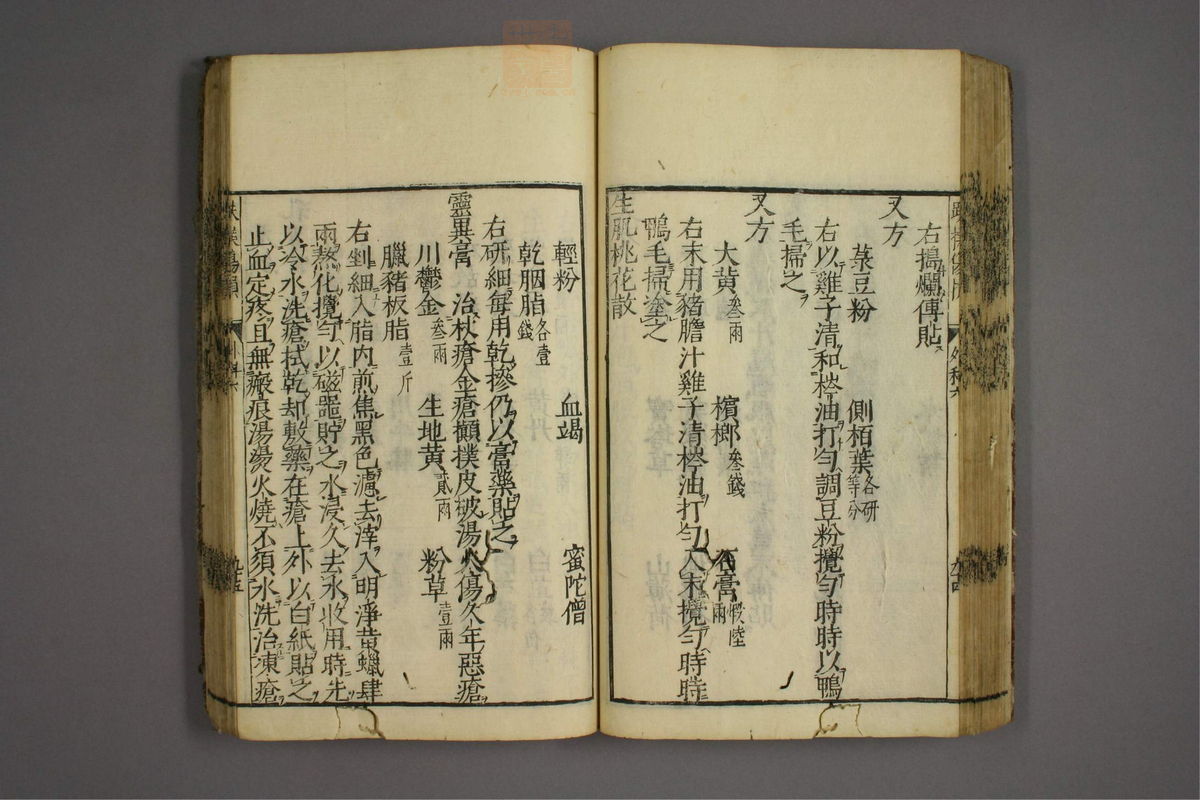 右搗爛傅貼
又方
菉豆粉 側栢葉各研等分
右以雞子清和桺油打勻調豆粉攪勻時時以鴨
毛掃之
又方
大黄叁兩 檳榔叁錢 石膏煅陸兩
右末用猪膽汁雞子清桺油打勻入末攪勻時時
鴨毛掃塗之
生肌桃花散
輕粉 血竭 蜜陀僧
乾胭脂各壹錢
右研細每用乾摻仍以膏藥貼之
靈異膏 治杖瘡金瘡顚撲皮破湯火傷久年惡瘡
川鬱金叁兩 生地黄貳兩 粉草壹兩
臘豬板脂壹斤
右剉細入脂内煎焦黑色濾去滓入明淨黄蠟肆
兩熬化攪勻以磁噐貯之水浸久去水收用時先
以冷水洗瘡拭乾却敷藥在瘡上外以白紙貼之
止血定疼且無瘢痕湯燙火燒不須水洗治凍瘡